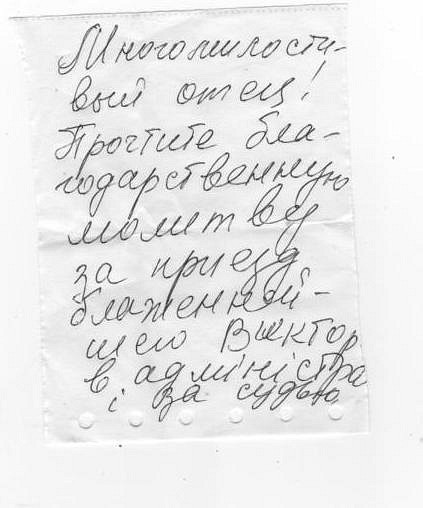 Многомилости-
вый отец!
Прочтите бла-
годарственную
молитву
за приезд
блаженней-
шего Виктор
в адміністра
і за судью